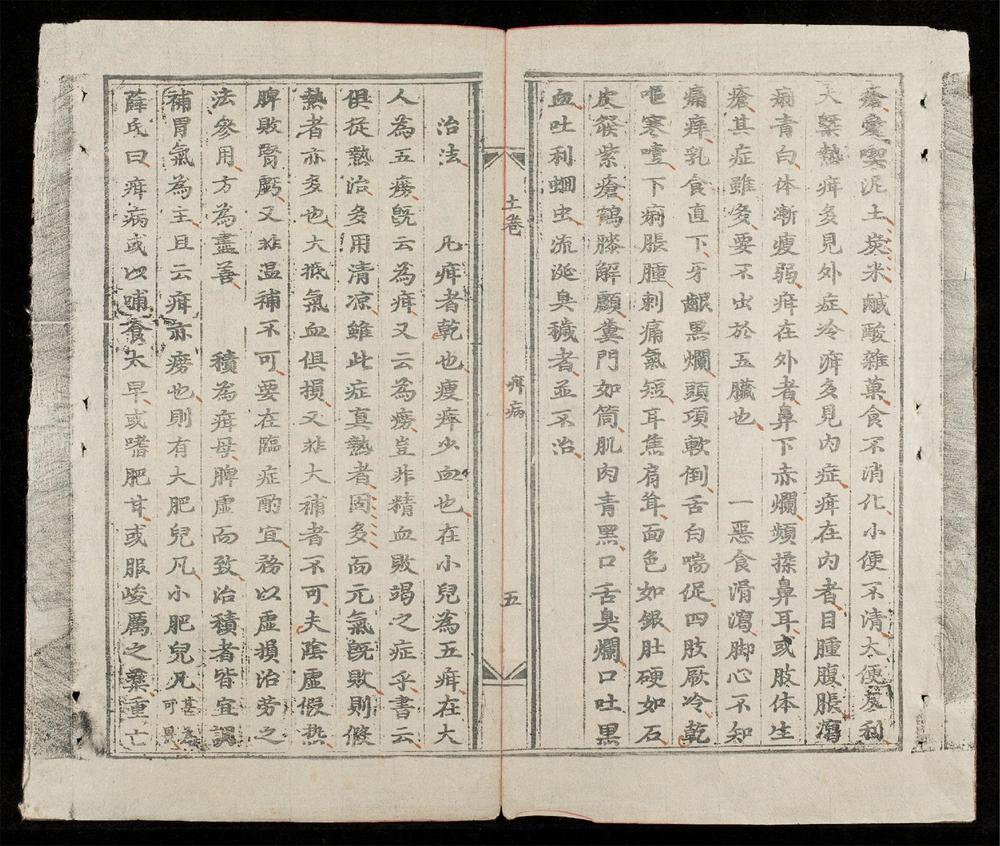 瘡愛喫泥土炭米鹹酸雜菓食不消化小便不清大便瀉利
大槩熱疳多見外症冷疳多見內症疳在內者目腫腹脹瀉
痢青白体漸瘦弱疳在外者鼻下赤爛頻揉鼻耳或肢体生
瘡其症雖多要不出於五臟也　一惡食滑瀉脚心不知
痛痒乳食直下牙齦黑爛頭項軟倒舌白喘促四肢厥冷乾
嘔寒噎下痢脹腫刺痛氣短耳焦肩聳面色如銀肚硬如石
皮髮紫瘡鶴膝解顱糞門如筒肌肉青黑口舌臭爛口吐黑
血吐利蛔虫流涎臭穢者並不治
土卷　疳病　五
治法　凡疳者乾也瘦瘁少血也在小兒為五疳在大
人為五癆旣云為疳又云為癆豈非精血敗竭之症乎書云
俱從熱治多用清凉雖此症真熱者固多而元氣旣敗則假
熱者亦多也大抵氣血俱損又非大補者不可夫陰虛假热
脾敗腎虧又非温補不可要在臨症酌宜務以虛損治劳之
法參用方為盡善　積為疳母脾虛而致治積者皆宜調
補胃氣為主且云疳亦癆也則有大肥兒凡小肥兒凡甚為可恩
薛氏曰疳病或以哺養太早或嗜肥甘或服峻厲之藥重亡